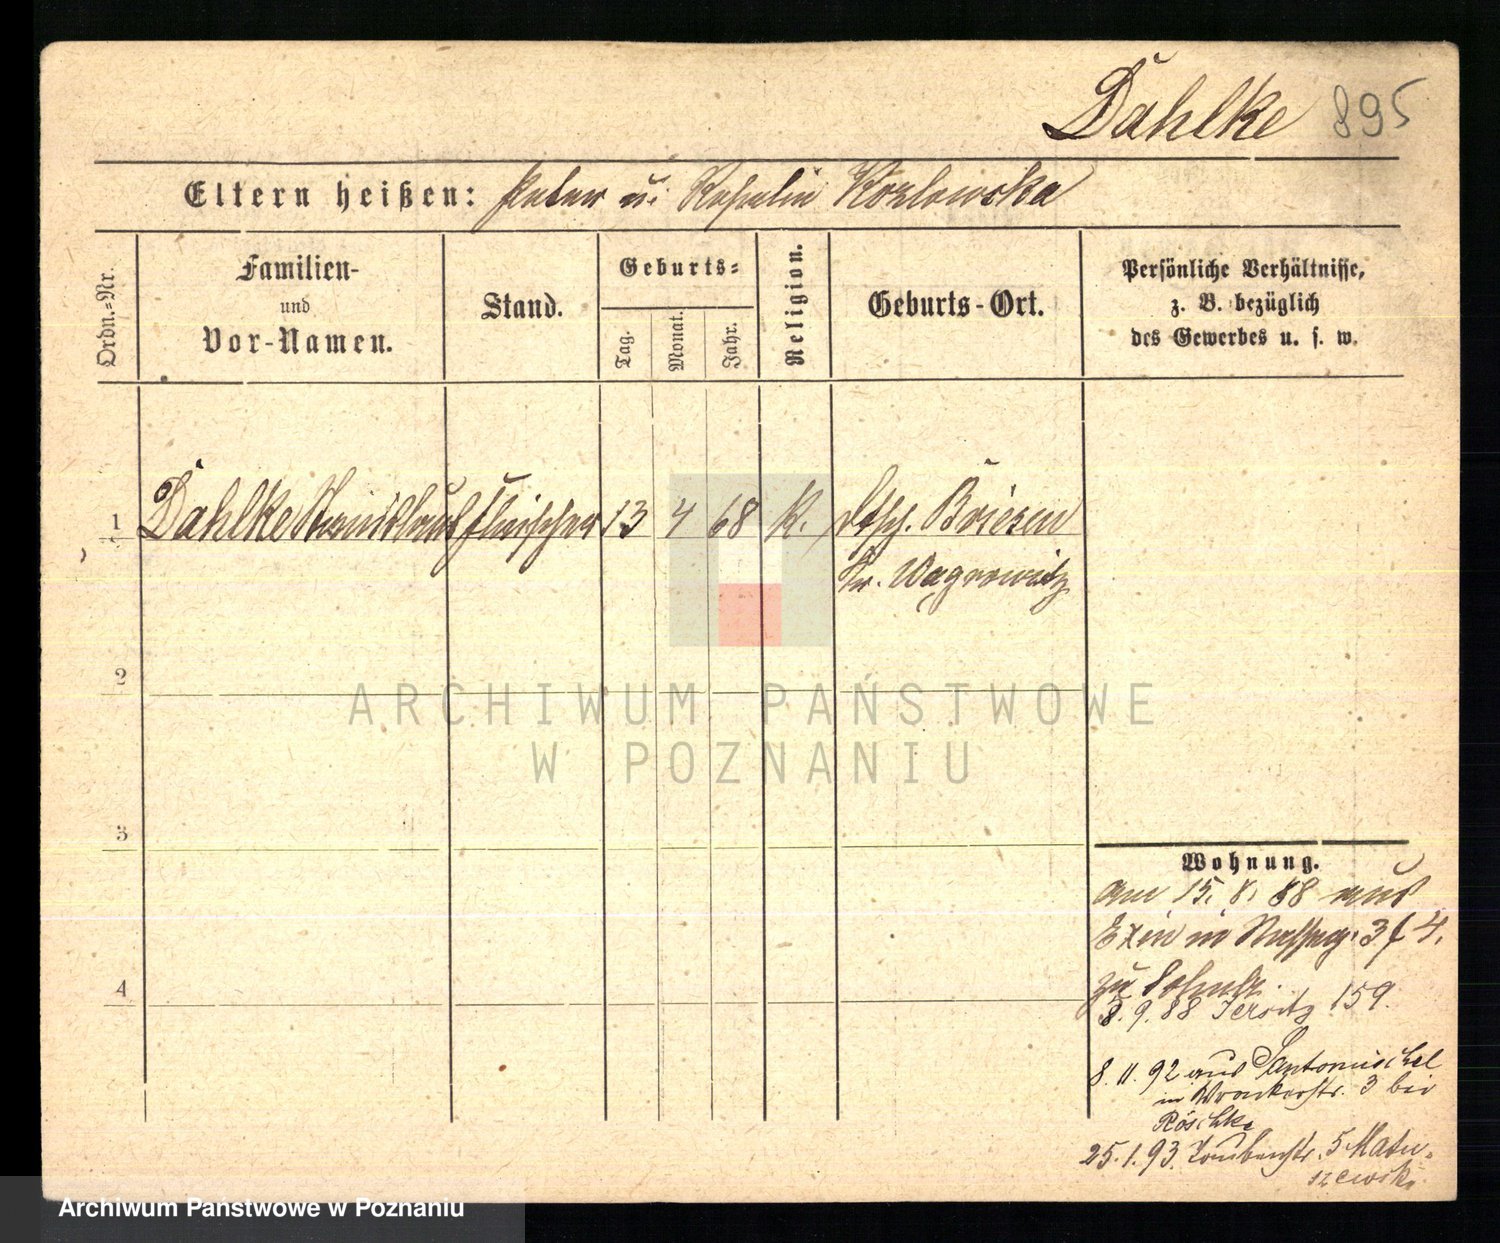 Dahlke 895
Eltern heißen: Peter u. Rosalie Kozlowska
Ordn.-Nr.
Familien-
und
Vor-Namen.
Stand.
Geburts-
Tag.
Monat.
Jahr.
Religion.
Geburts-Ort.
Persönliche Verhältnisse,
z. B. bezüglich
des Gewerbes u. s. w.
1 Dahlke Stanislaus Fleischer 13 4 68 K. Briesen
Kr. Wągrowitz
2
3
4
ARCHIWUM PAŃSTWOWE
W POZNANIU
Wohnung.
am 15. 8. 88 aus
Exin in 4.
zu
8. 9. 88 Jersitz 159.
8. 11. 92 aus Santomischel
in Wronkerstr. 3 bei
Röschke
25. 1. 93. Taubenstr. 5 Matu-
szewski
Archiwum Państwowe w Poznaniu